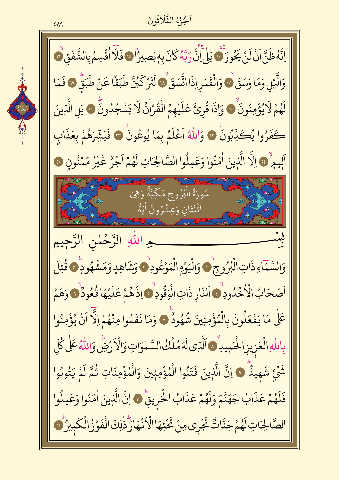 اَلْجُزْءُ الثَّلَاثُونَ
اِنَّهُ ظَنَّ اَنْ لَنْ يَحُورَ ﴿١٤﴾ بَلٰى اِنَّ رَبَّهُ كَانَ بِهٖ بَصٖيرًا ﴿١٥﴾ فَلَا اُقْسِمُ بِالشَّفَقِ ﴿١٦﴾
وَالَّيْلِ وَمَا وَسَقَ ﴿١٧﴾ وَالْقَمَرِ اِذَا اتَّسَقَ ﴿١٨﴾ لَتَرْكَبُنَّ طَبَقًا عَنْ طَبَقٍ ﴿١٩﴾ فَمَا
لَهُمْ لَا يُؤْمِنُونَ ﴿٢٠﴾ وَاِذَا قُرِئَ عَلَيْهِمُ الْقُرْاٰنُ لَا يَسْجُدُونَ ﴿٢١﴾ بَلِ الَّذٖينَ
كَفَرُوا يُكَذِّبُونَ ﴿٢٢﴾ وَاللّٰهُ اَعْلَمُ بِمَا يُوعُونَ ﴿٢٣﴾ فَبَشِّرْهُمْ بِعَذَابٍ
اَلٖيمٍ ﴿٢٤﴾ اِلَّا الَّذٖينَ اٰمَنُوا وَعَمِلُوا الصَّالِحَاتِ لَهُمْ اَجْرٌ غَيْرُ مَمْنُونٍ ﴿٢٥﴾
سُورَةُ الْبُرُوجِ مَكِّيَّةٌ وَهِىَ
اثْنَتَانِ وَعِشْرُونَ اٰيَةً
بِسْمِ اللّٰهِ الرَّحْمٰنِ الرَّحٖيمِ
وَالسَّمَاءِ ذَاتِ الْبُرُوجِ ﴿١﴾ وَالْيَوْمِ الْمَوْعُودِ ﴿٢﴾ وَشَاهِدٍ وَمَشْهُودٍ ﴿٣﴾ قُتِلَ
اَصْحَابُ الْاُخْدُودِ ﴿٤﴾ اَلنَّارِ ذَاتِ الْوَقُودِ ﴿٥﴾ اِذْ هُمْ عَلَيْهَا قُعُودٌ ﴿٦﴾ وَهُمْ
عَلٰى مَا يَفْعَلُونَ بِالْمُؤْمِنٖينَ شُهُودٌ ﴿٧﴾ وَمَا نَقَمُوا مِنْهُمْ اِلَّا اَنْ يُؤْمِنُوا
بِاللّٰهِ الْعَزٖيزِ الْحَمٖيدِ ﴿٨﴾ اَلَّذٖى لَهُ مُلْكُ السَّمٰوَاتِ وَالْاَرْضِ وَاللّٰهُ عَلٰى كُلِّ
شَىْءٍ شَهٖيدٌ ﴿٩﴾ اِنَّ الَّذٖينَ فَتَنُوا الْمُؤْمِنٖينَ وَالْمُؤْمِنَاتِ ثُمَّ لَمْ يَتُوبُوا
فَلَهُمْ عَذَابُ جَهَنَّمَ وَلَهُمْ عَذَابُ الْحَرٖيقِ ﴿١٠﴾ اِنَّ الَّذٖينَ اٰمَنُوا وَعَمِلُوا
الصَّالِحَاتِ لَهُمْ جَنَّاتٌ تَجْرٖى مِنْ تَحْتِهَا الْاَنْهَارُ ذٰلِكَ الْفَوْزُ الْكَبٖيرُ ﴿١١﴾